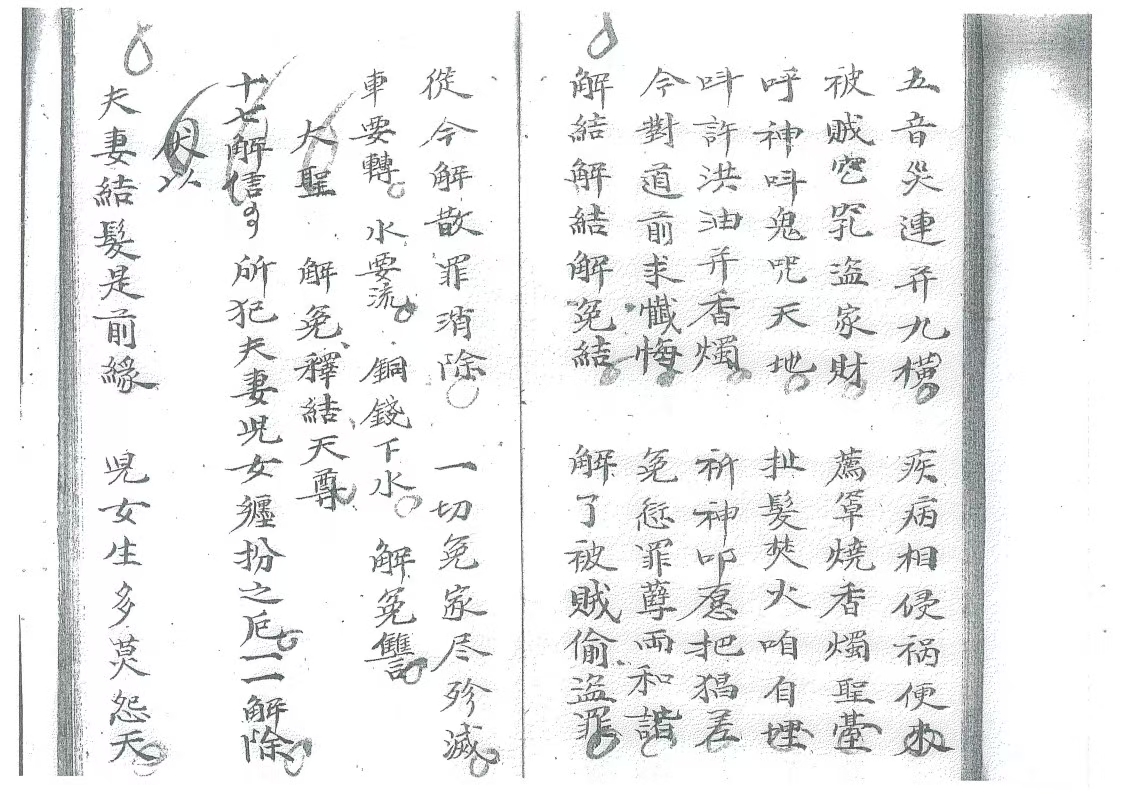 五音災連并九橫 疾病相侵祸便來
被賊窓窂盜家財 薦草燒香燭聖臺
呼神呌鬼咒天地 扯髮焚火咱自埋
呌許洪油并香燭 祈神叩愿把猖差
今對道前求懺悔 冤愆罪孽両和諧
解結解結解冤結 解了被賊偷盜罪
從今解散罪消除 一切冤家尽殄滅
車要轉 水要流 銅錢下水 解冤讐
大聖 解冤釋結天尊
十七解信 所犯夫妻児女纒扮之厄一一解除
伏以
夫妻結髮是前緣 児女生多莫怨天